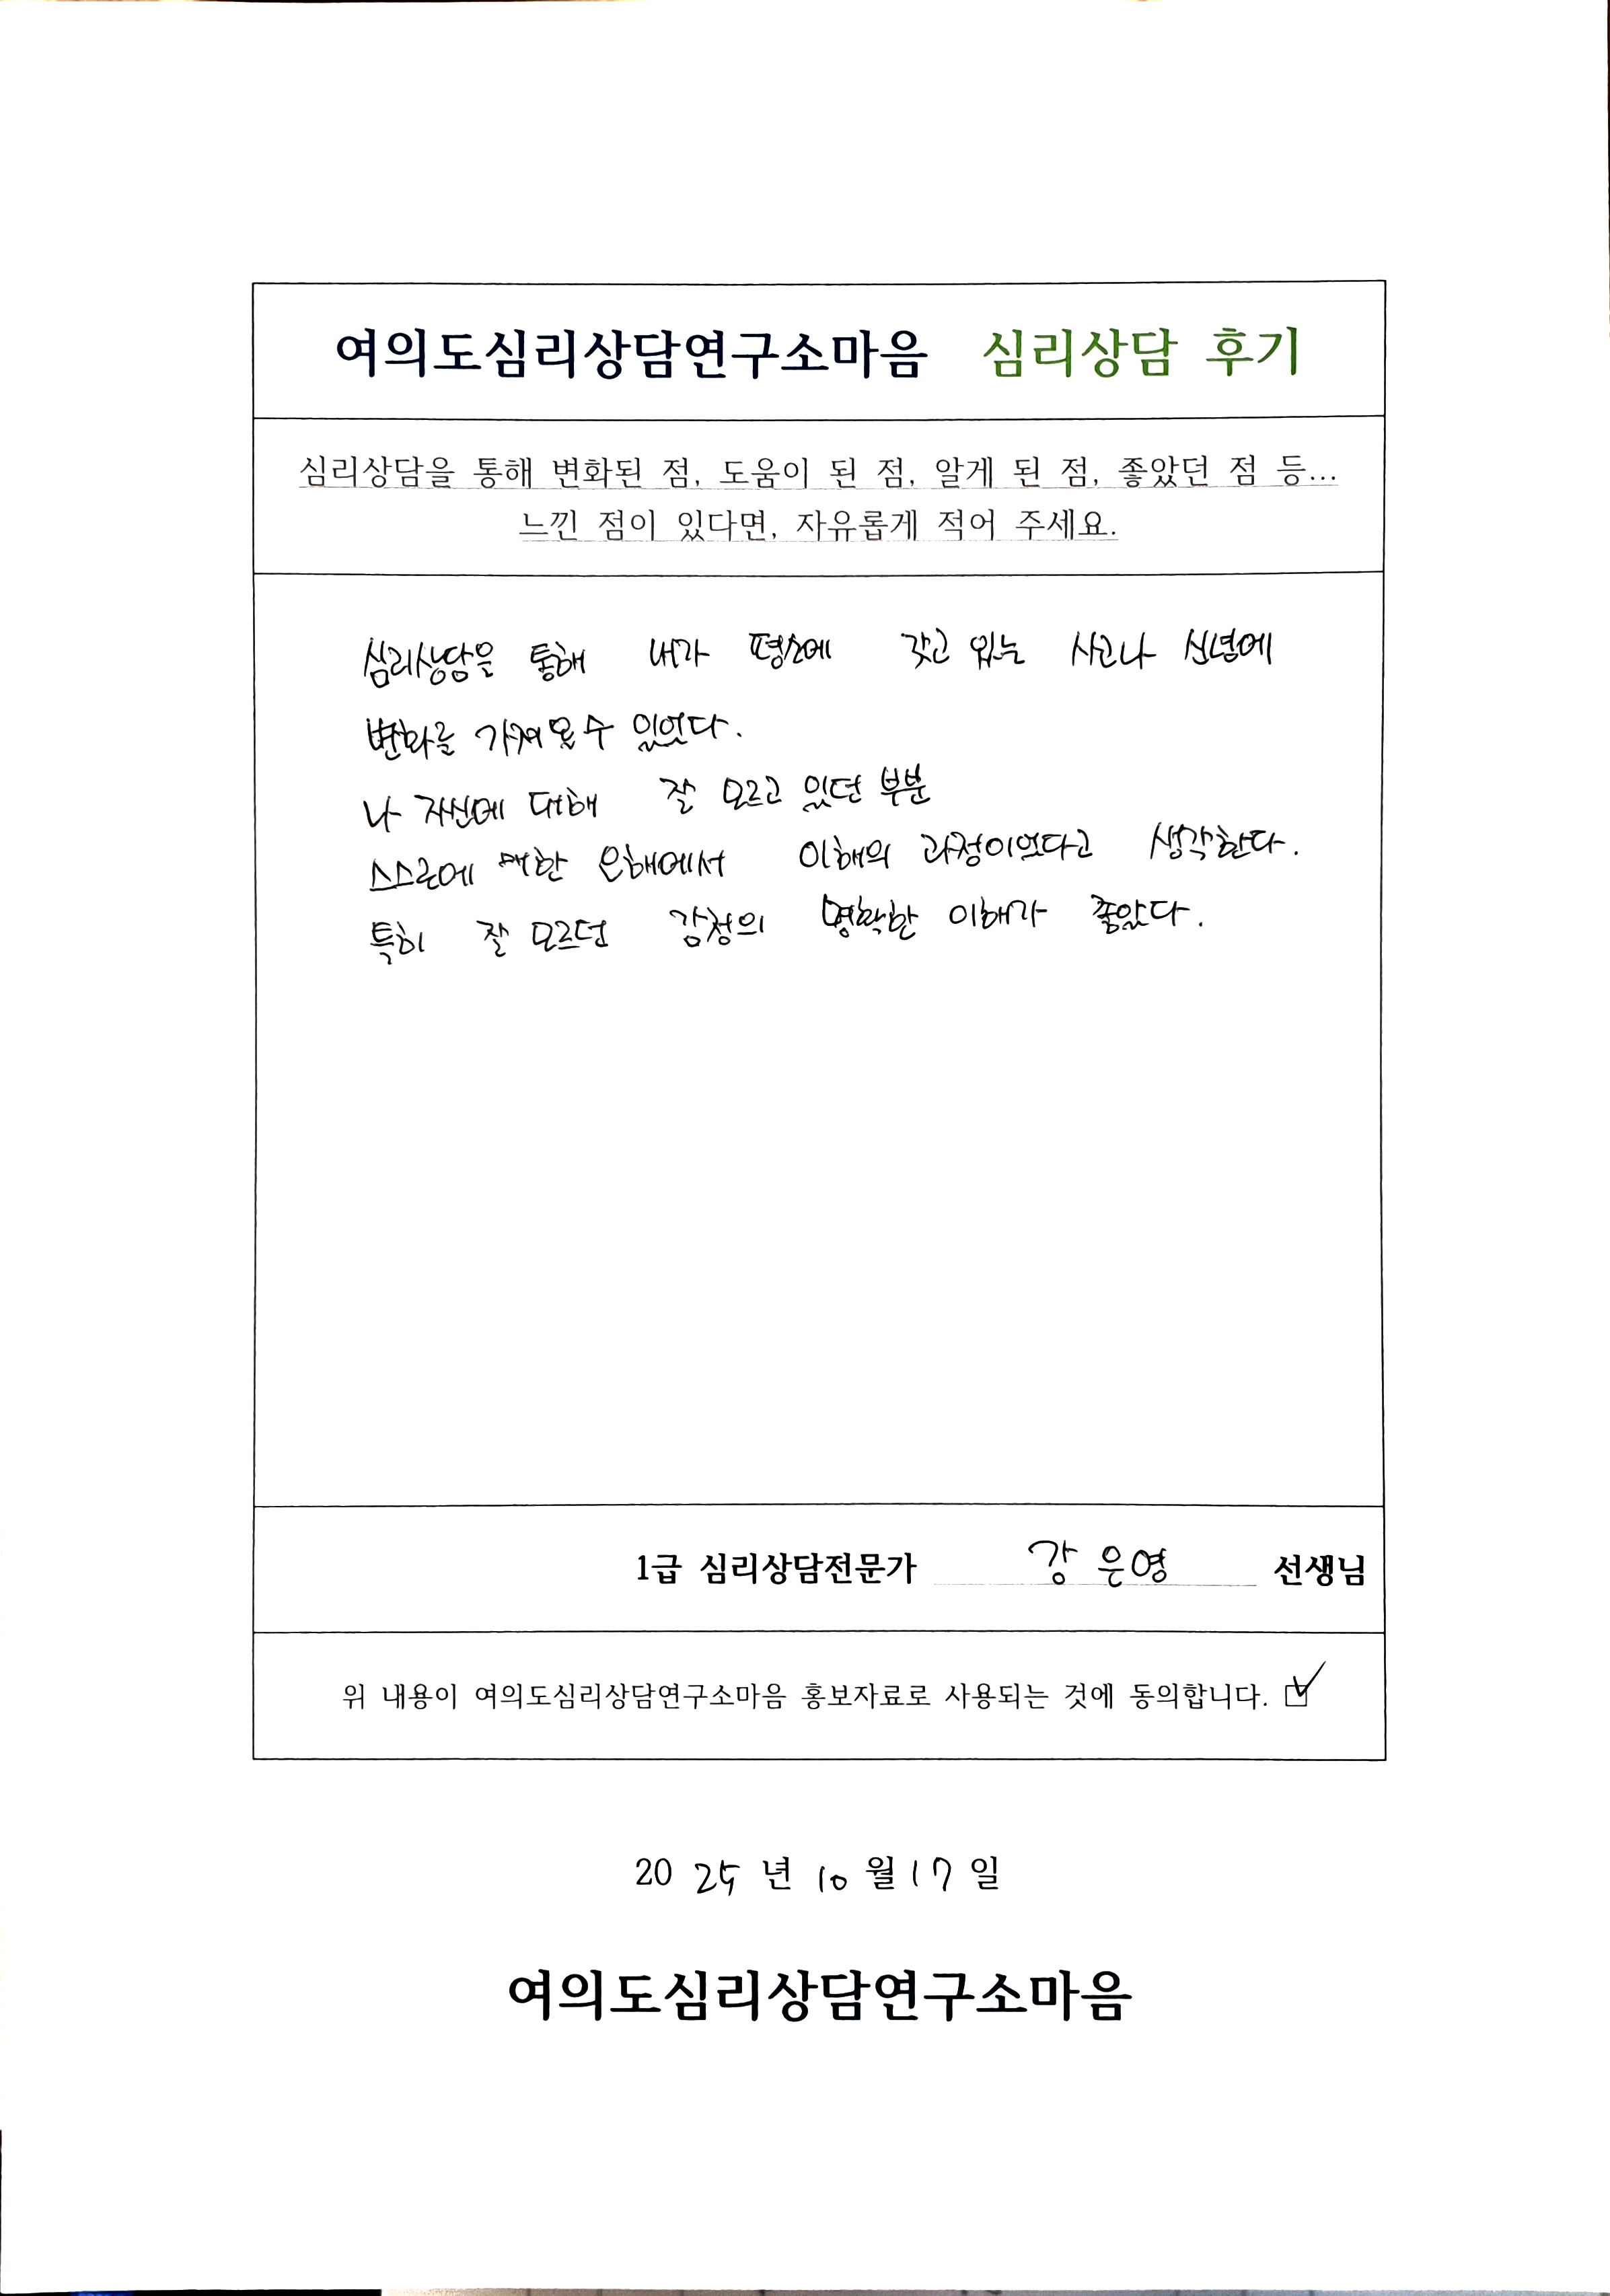 여의도심리상담연구소마음 심리상담 후기
심리상담을 통해 변화된 점, 도움이 된 점, 알게 된 점, 좋았던 점 등...
느낀 점이 있다면, 자유롭게 적어 주세요.
심리상담을 통해 내가 평소에 갖고 있는 사고나 신념에
변화를 가져올 수 있었다.
나 자신에 대해 잘 모르고 있던 부분
스스로에 대한 오해에서 이해의 과정이었다고 생각한다.
특히 잘 모르던 감정의 명확한 이해가 좋았다.
1급 심리상담전문가 강은영 선생님
위 내용이 여의도심리상담연구소마음 홍보자료로 사용되는 것에 동의합니다.
2025년 10월 17일
여의도심리상담연구소마음